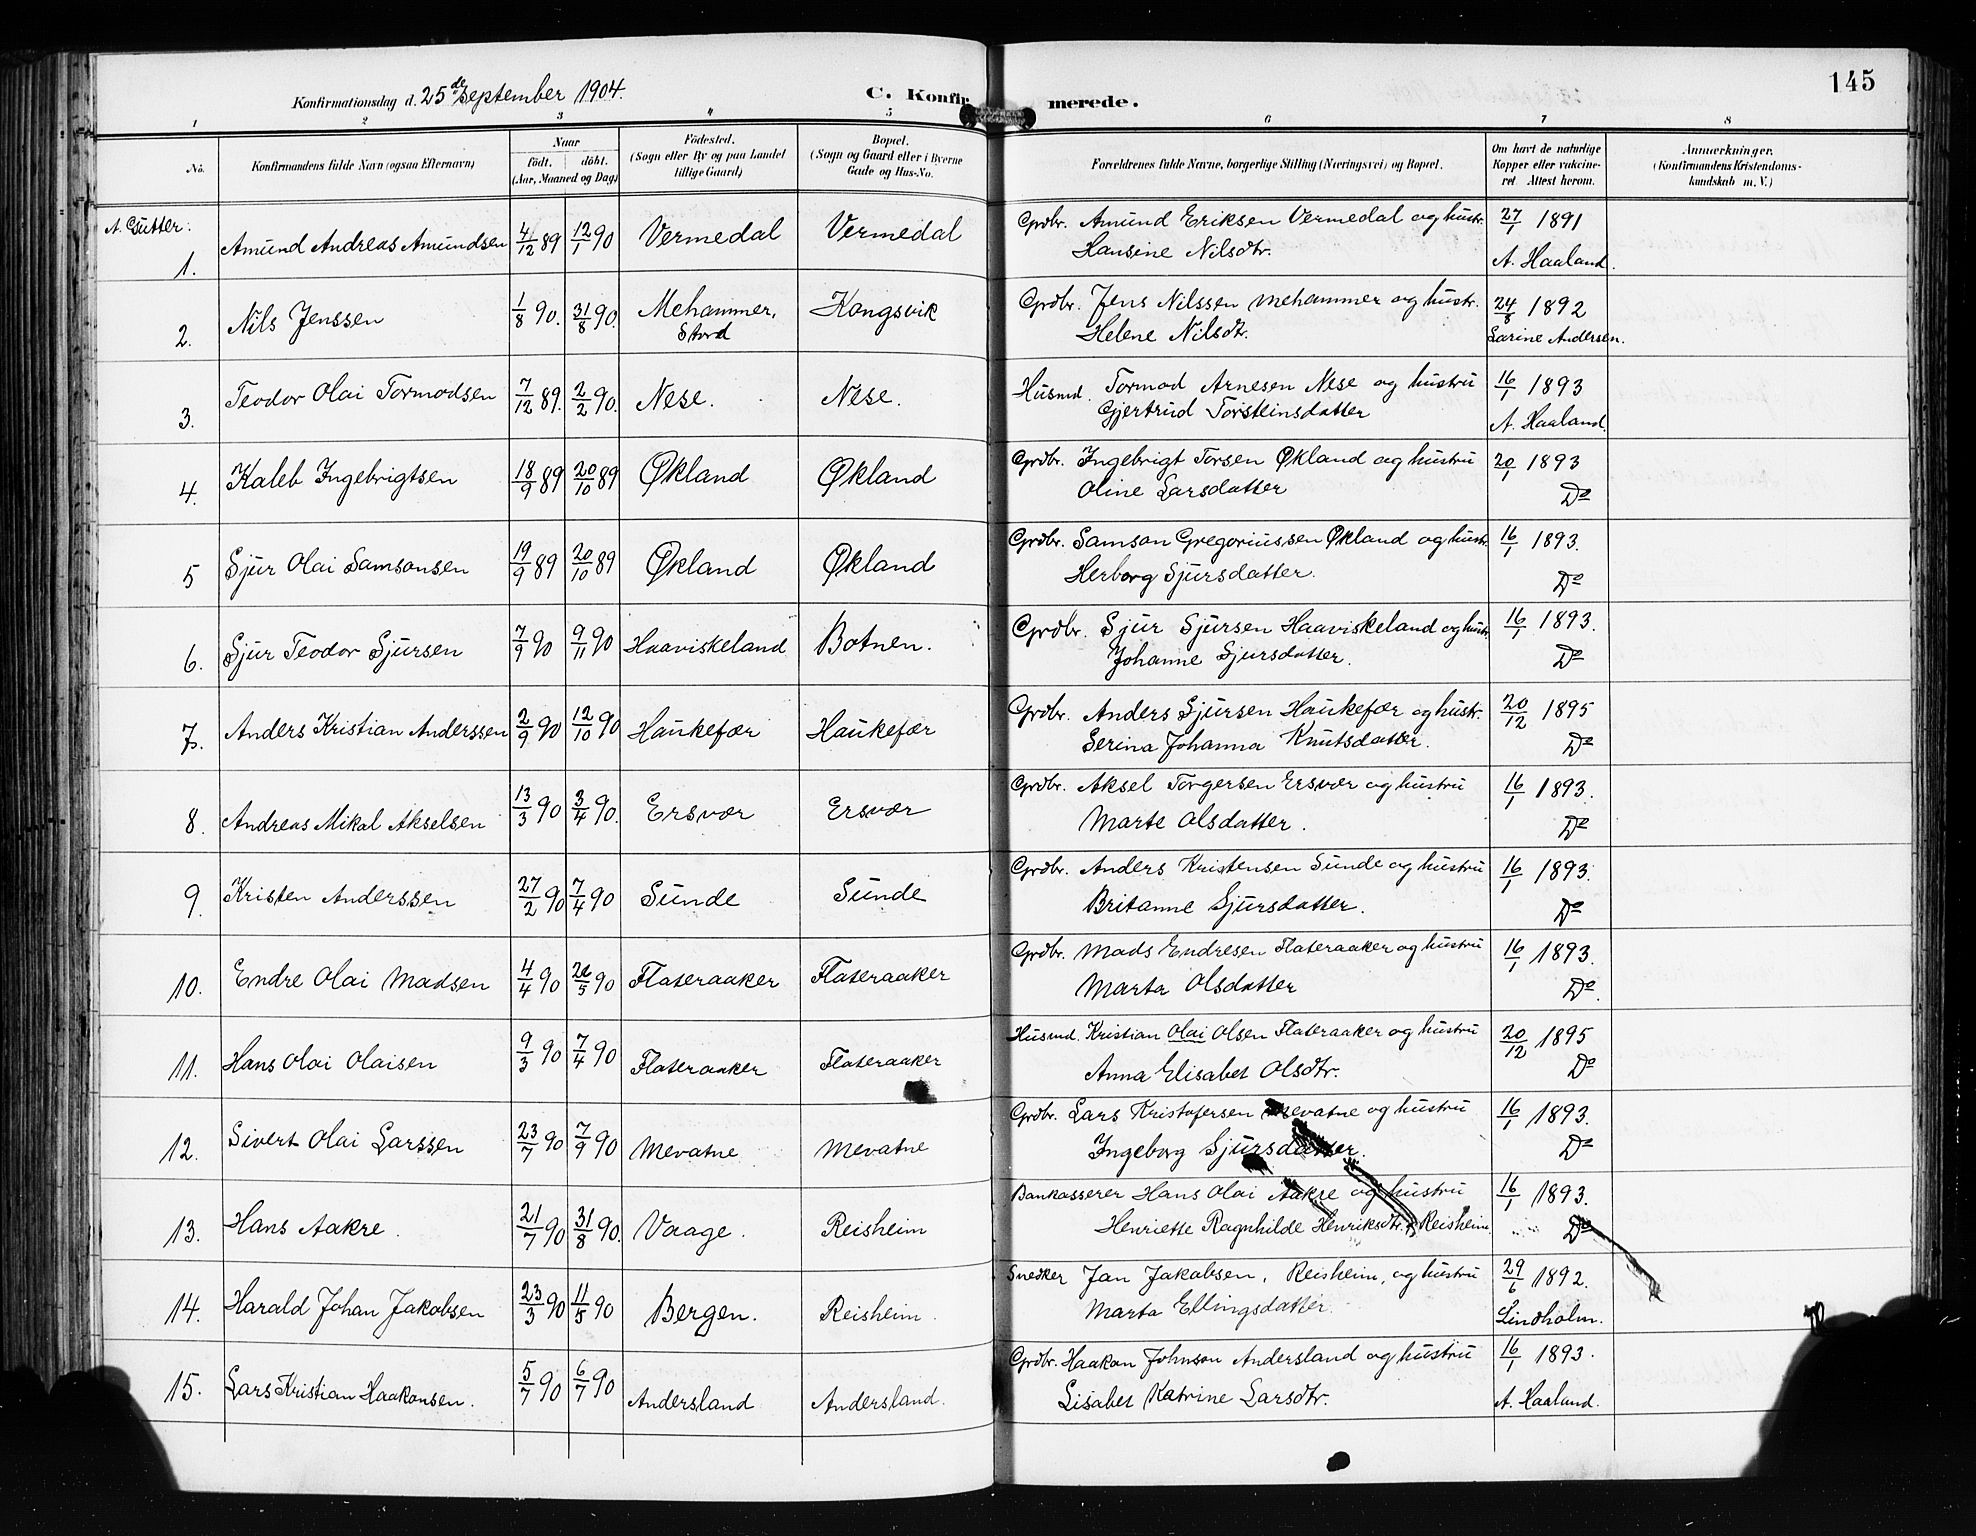 145
Konfirmationsdag d. 25de september 1904. C. Konfirmerede.
1 2 3 4 5 6 7 8
No. Konfirmandens fulde Navn (ogsaa Efternavn) Naar født. døbt. (Aar, Maaned og Dag) Fødested. (Sogn eller By og paa Landet tillige Gaard) Bopæl. (Sogn og Gaard eller i Byerne Gade og Hus-No. Forældrenes fulde Navne, borgerlige Stilling (Næringsvei) og Bopæl. Om havt de naturlige Kopper eller vaccineret Attest herom. Anmærkninger. (Konfirmandens Kristendomskundskab m. V.)
A. Gutter:
1. Amund Andreas Amundsen 4/12 89 12/1 90 Vermedal Vermedal Grdbr. Amund Eriksen Vermedal og hustr. 27/1 1891
Hansine Nilsdtr. A. Haaland.
2. Nils Jenssen 1/8 90. 31/8 90. Mehammer, Stord Kongsvik Grdbr. Jens Nilssen Mehammer og hustr. 24/8 1892
Helene Nilsdtr. Larine Andersen.
3. Teodor Olai Tormodsen 7/12 89. 2/2 90. Nese. Nese. Husmd. Tormod Arnesen Nese og hustru 16/1 1893
Gjertrud Torsteinsdatter A. Haaland.
4. Kaleb Ingebrigtsen 18/9 89 20/10 89 Økland Økland Grdbr. Ingebrigt Torsen Økland og hustru 20/1 1893
Oline Larsdatter Do
5 Sjur Olai Samsonsen 19/9 89 20/10 89 Økland Økland Grdbr. Samson Gregoriussen Økland og hustr. 16/1 1893.
Herborg Sjursdatter. Do
6. Sjur Teodor Sjursen 7/9 90 9/11 90 Haaviskeland Botnen. Grdbr. Sjur Sjursen Haaviskeland og hustr. 16/1 1893.
Johanne Sjursdatter. Do
7. Anders Kristian Anderssen 2/9 90 12/10 90 Haukefær Haukefær Grdbr. Anders Sjursen Haukefær og hustr. 20/12 1895
Serina Johanna Knutsdatter. Do
8. Andreas Mikal Akselsen 13/3 90 3/4 90. Ersvær Ersvær Grdbr. Aksel Torgersen Ersvær og hustru 16/1 1893.
Marte Olsdatter. Do
9. Kristen Anderssen 27/2 90 7/4 90 Sunde Sunde Grdbr. Anders Kristensen Sunde og hustru 16/1 1893.
Britanne Sjursdatter. Do
10. Endre Olai Madsen 4/4 90 26/5 90 Flateraaker Flateraaker Grdbr. Mads Endresen Flateraaker og hustru 16/1 1893.
Marta Olsdatter Do.
11. Hans Olai Olaisen 9/3 90 7/4 90 Flateraaker Flateraaker Husmd. Kristian Olai Olsen Flateraaker og hustru 20/12 1895
Anna Elisabet Olsdtr. Do
12. Sivert Olai Larssen 23/7 90 7/9 90 Mevatne Mevatne Grdbr. Lars Kristofersen Mevatne og hustru 16/1 1893.
Ingeborg Sjursdatter. Do
13. Hans Aakre. 21/7 90 31/8 90. Vaage. Reisheim Bankasserer Hans Olai Aakre og hustru 16/1 1893.
Henriette Ragnhilde Henriksdtr. Reisheim. Do
14. Harald Johan Jakobsen 23/3 90 11/5 90 Bergen. Reisheim. Snedker Jan Jakobsen, Reisheim, og hustru 29/6 1892.
Marta Ellingsdatter. Lindholm.
15. Lars Kristian Haakonsen. 5/7 90 6/7 90 Andersland Andersland. Grdbr. Haakon Johnson Andersland og hustru 16/1 1893.
Lisabet Katrine Larsdtr. A. Haaland.